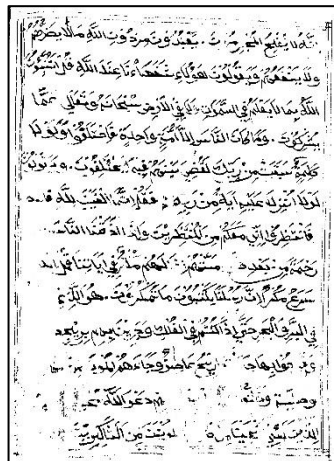 انه لا يفلح المجرمون ويعبدون من دون الله ما لا يضرهم
ولا ينفعهم ويقولون هؤلاء شفعاؤنا عند الله قل اتنبئون
الله بما لا يعلم في السموات ولا في الارض سبحانه وتعالى عما
يشركون وما كان الناس الا امة واحدة فاختلفوا ولولا
كلمة سبقت من ربك لقضي بينهم فيما فيه يختلفون ويقولون
لولا انزل عليه اية من ربه فقل انما الغيب لله
فانتظروا اني معكم من المنتظرين واذا اذقنا الناس
رحمة من بعد مستهم اذا لهم مكر في اياتنا قل الله
اسرع مكرا ان رسلنا يكتبون ما تمكرون هو الذي
في البر والبحر حتى اذا كنتم في الفلك وجرين بهم بريح
وفرحوا بها ريح عاصف وجاءهم الموج
دعوا الله
من الشاكرين